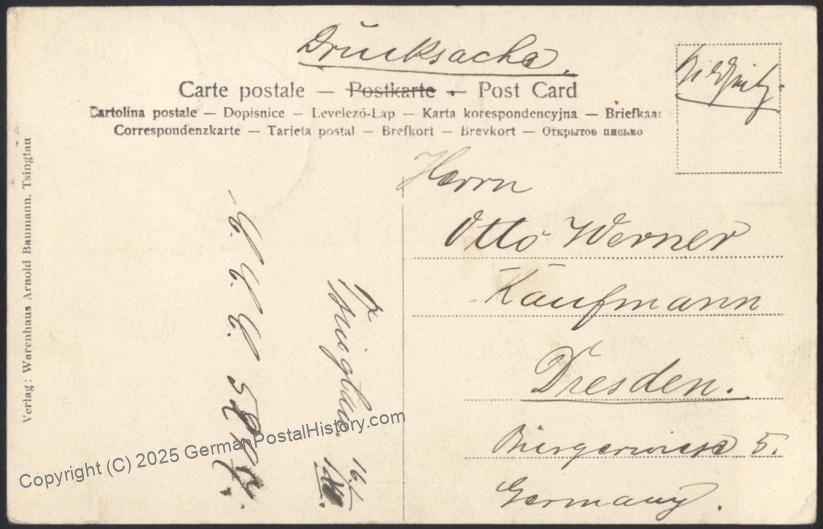 Drucksache.
Carte postale — Postkarte — Post Card
Cartolina postale — Dopisnice — Levelező-Lap — Karta korespondencyjna — Briefkaar
Correspondenzkarte — Tarjeta postal — Brefkort — Brevkort — Открытое письмо
Herrn
Otto Werner
Kaufmann
Dresden.
Bürgerwiese 5.
Germany.
Tsingtau
Verlag: Warenhaus Arnold Baumann, Tsingtau
Copyright (C) 2025 GermanPostalHistory.com